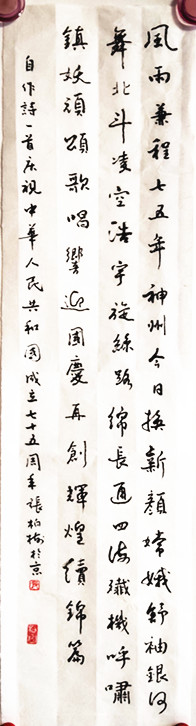 風雨兼程七五年神州今日換新顏嫦娥舒袖銀河
舞北斗凌空浩宇旋絲路綿長通四海殲機呼嘯
鎮妖頑頌歌唱響迎國慶再創輝煌續錦篇
自作詩一首庆祝中華人民共和國成立七十五周年張柏樹於京